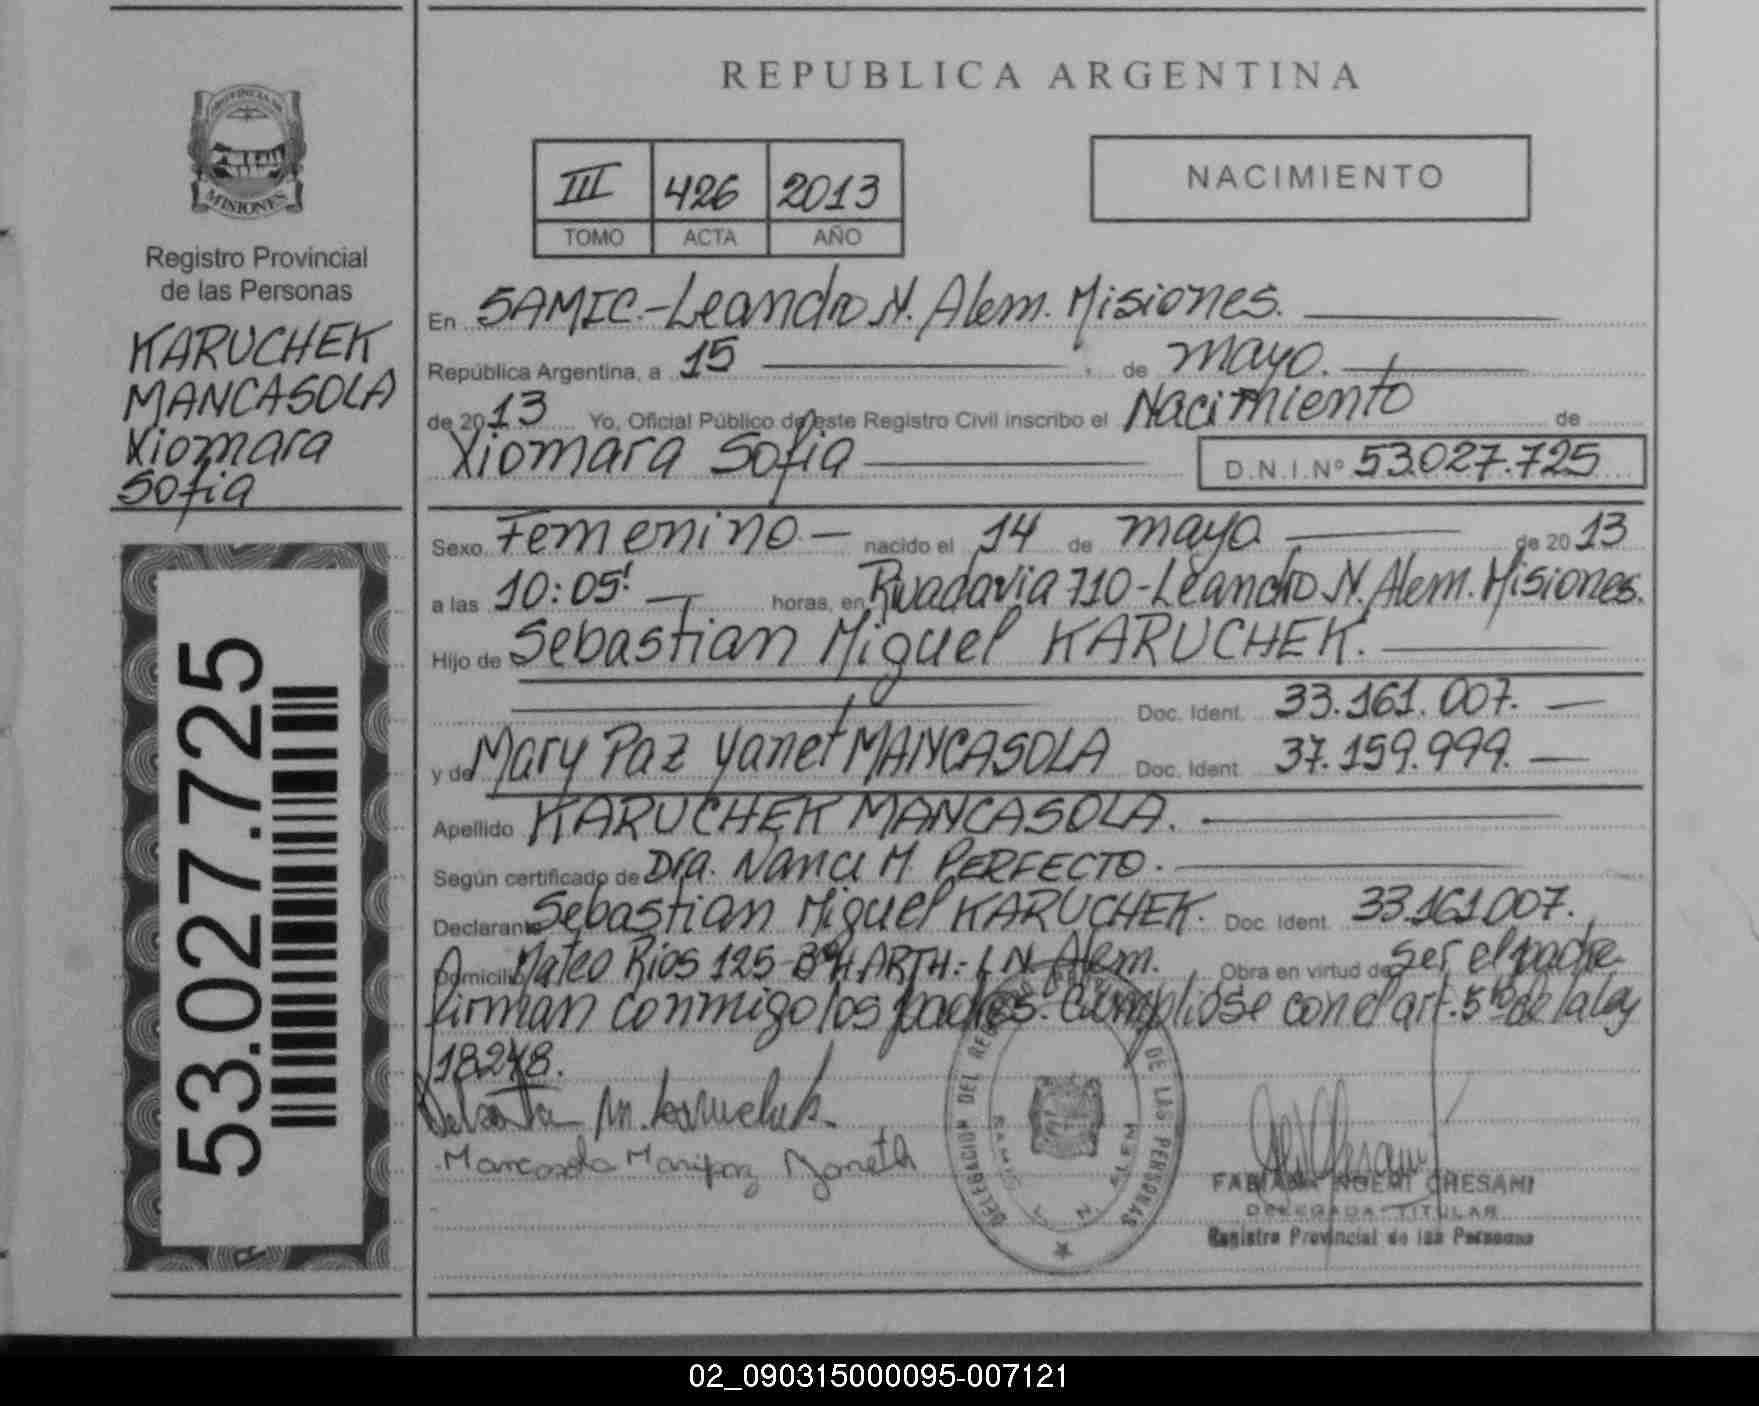 REPUBLICA ARGENTINA
PROVINCIA DE
MISIONES
Registro Provincial
de las Personas
KARUCHEK
MANCASOLA
Xiomara
Sofia
53.027.725
III 426 2013
TOMO ACTA AÑO
NACIMIENTO
En SAMIC.-Leandro N. Alem. Misiones.
República Argentina, a 15 de mayo.
de 2013 Yo, Oficial Público de este Registro Civil inscribo el Nacimiento de
Xiomara Sofia D.N.I.Nº 53.027.725
Sexo Femenino.- nacido el 14 de mayo de 2013
a las 10:05' horas, en Rivadavia 710-Leandro N. Alem. Misiones.
Hijo de Sebastian Miguel KARUCHEK.
Doc. Ident. 33.161.007.
y de Mary Paz Yanet MANCASOLA Doc. Ident. 37.159.999.
Apellido KARUCHEK MANCASOLA.
Según certificado de Dra. Nanci M. PERFECTO.
Declarante Sebastian Miguel KARUCHEK. Doc. Ident. 33.161.007.
Domicilio Mateo Rios 125-Bº H. ARTH.- L.N. Alem. Obra en virtud de ser el padre
firman conmigo los padres. Cumpliose con el art. 5to de la ley
18248.
Mancasola Maripaz Yaneth
DELEGACION DEL REGISTRO DE LAS PERSONAS
SAMIC L. N. ALEM
FABIANA NOEMI CHESANI
DELEGADA TITULAR
Registro Provincial de las Personas
02_090315000095-007121